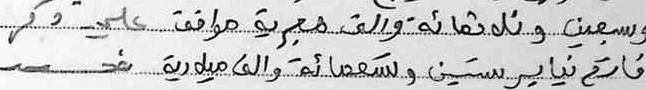 وسبعين وثلاثمائة والف هجرية موافق على ذكر
فاتح نيابر ستين وتسعمائة والف ميلادية